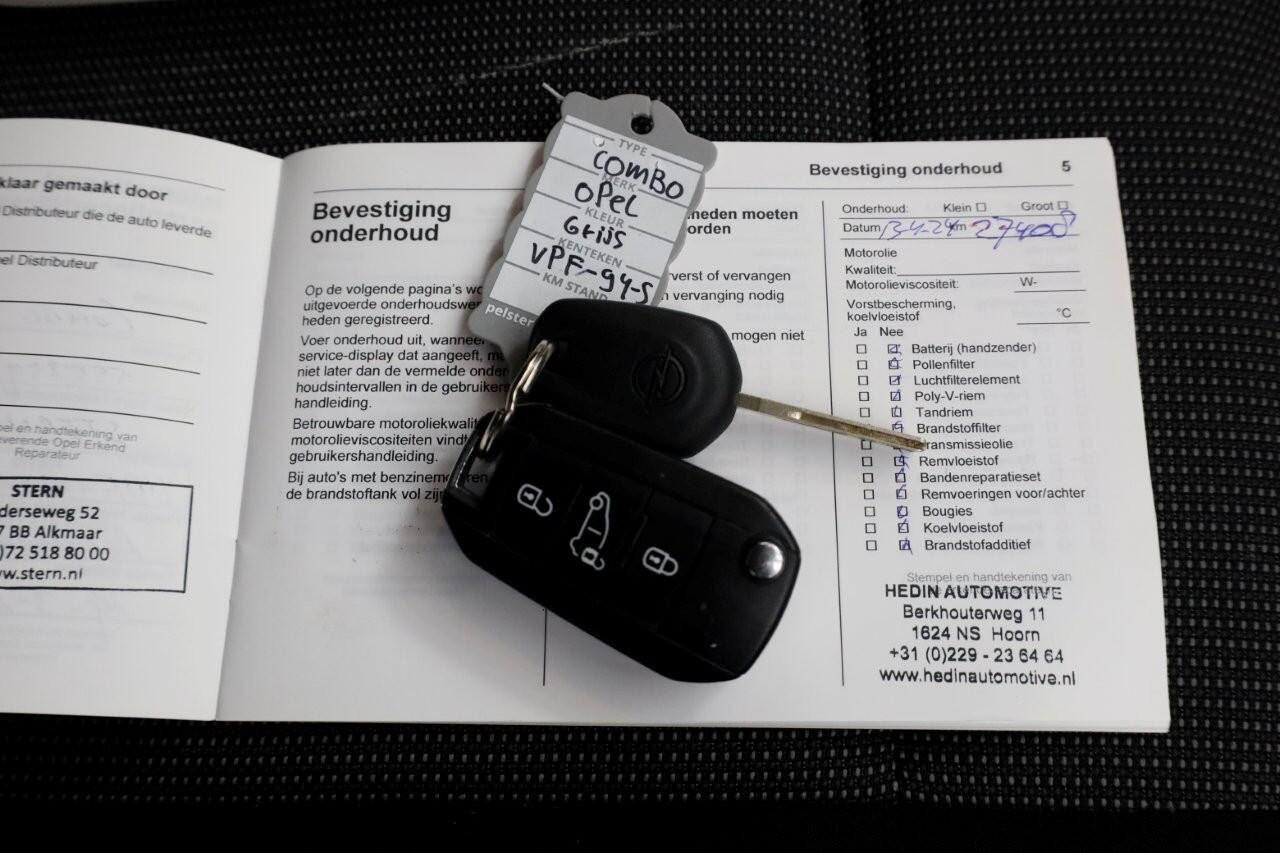 klaar gemaakt door
Distributeur die de auto leverde
el Distributeur
pel en handtekening van
everende Opel Erkend
Reparateur
STERN
derseweg 52
7 BB Alkmaar
)72 518 80 00
w.stern.nl
Bevestiging onderhoud 5
Bevestiging
onderhoud
Op de volgende pagina's wo
uitgevoerde onderhoudswe
heden geregistreerd.
Voer onderhoud uit, wanneer
service-display dat aangeeft, m
niet later dan de vermelde onder
houdsintervallen in de gebruikers
handleiding.
Betrouwbare motoroliekwalit
motorolieviscositeiten vindt
gebruikershandleiding.
Bij auto's met benzinem
de brandstoftank vol zijn
TYPE
COMBO
MERK
OPEL
KLEUR
Grijs
KENTEKEN
VPF-94-S
KM STAND
pelster
heden moeten
orden
verst of vervangen
n vervanging nodig
mogen niet
Onderhoud: Klein Groot
Datum 13-4-24 km 27408
Motorolie
Kwaliteit:
Motorolieviscositeit: W-
Vorstbescherming,
koelvloeistof °C
Ja Nee
Batterij (handzender)
Pollenfilter
Luchtfilterelement
Poly-V-riem
Tandriem
Brandstoffilter
ransmissieolie
Remvloeistof
Bandenreparatieset
Remvoeringen voor/achter
Bougies
Koelvloeistof
Brandstofadditief
Stempel en handtekening van
HEDIN AUTOMOTIVE
Berkhouterweg 11
1624 NS Hoorn
+31 (0)229 - 23 64 64
www.hedinautomotive.nl